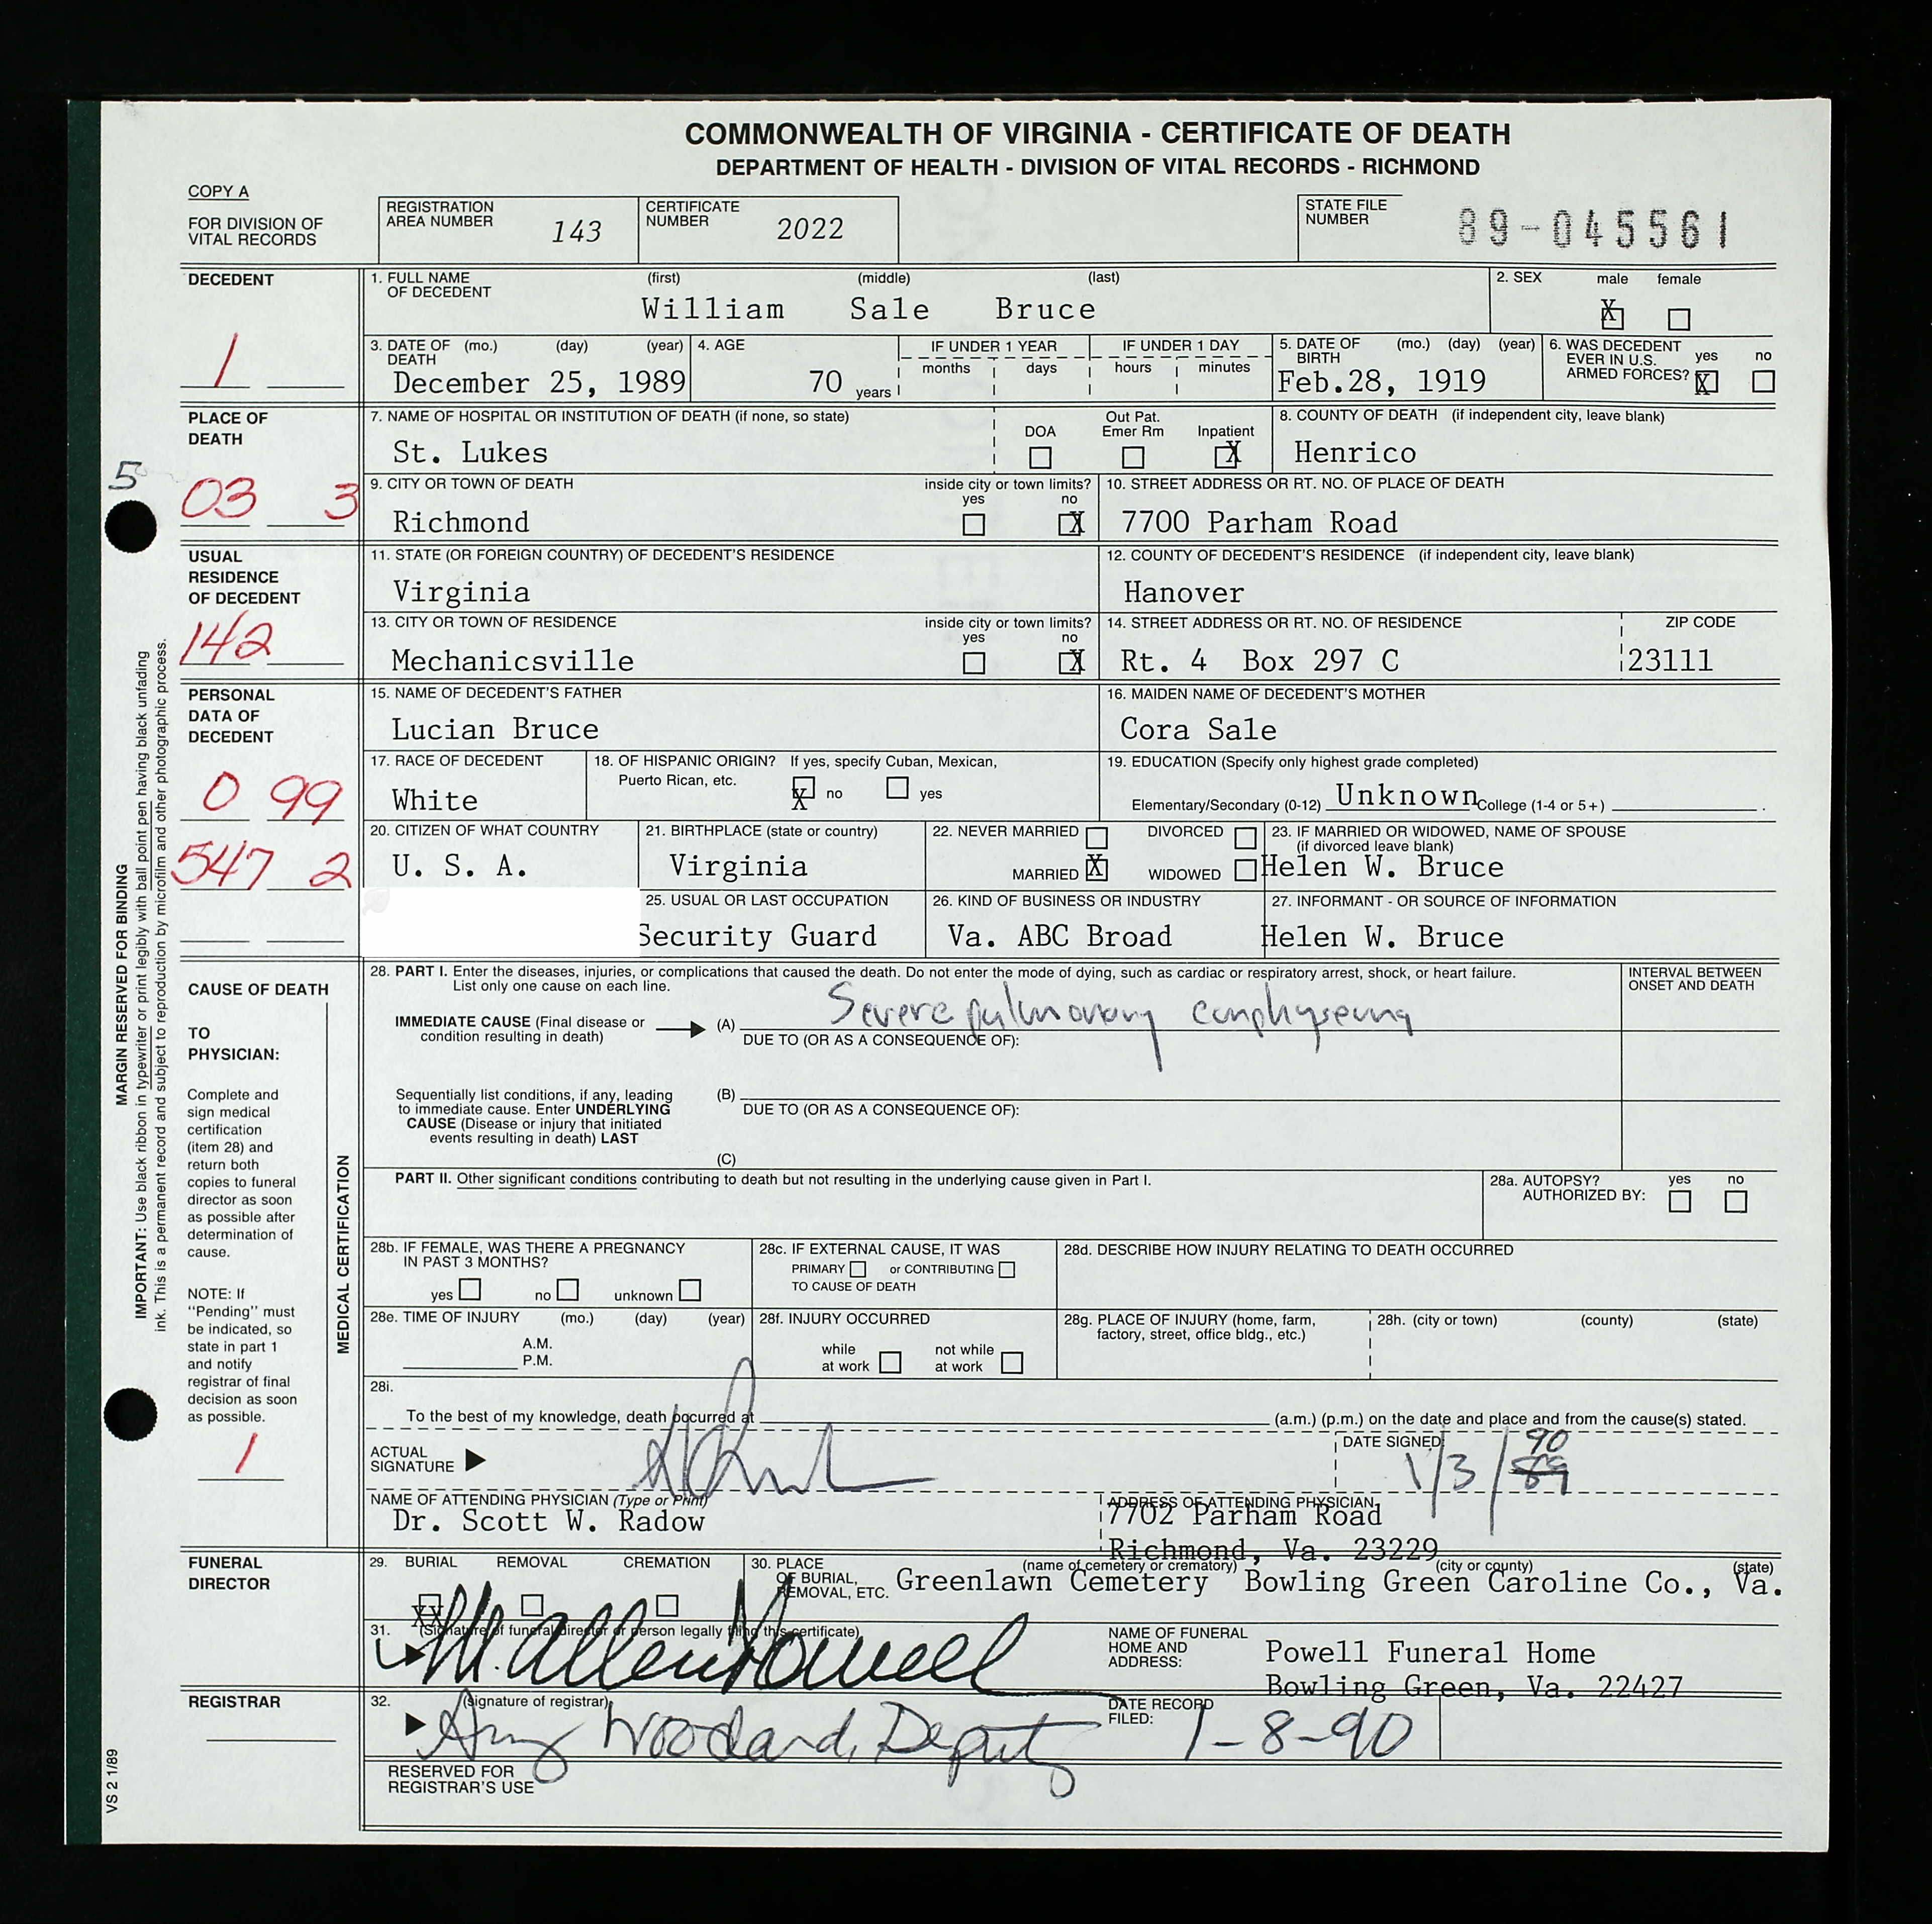 COMMONWEALTH OF VIRGINIA - CERTIFICATE OF DEATH
DEPARTMENT OF HEALTH - DIVISION OF VITAL RECORDS - RICHMOND
COPY A
FOR DIVISION OF
VITAL RECORDS
REGISTRATION
AREA NUMBER 143
CERTIFICATE
NUMBER 2022
STATE FILE
NUMBER 89-045561
DECEDENT
1
1. FULL NAME OF DECEDENT (first) (middle) (last)
William Sale Bruce
2. SEX male female
X
3. DATE OF DEATH (mo.) (day) (year)
December 25, 1989
4. AGE
70 years
IF UNDER 1 YEAR
months days
IF UNDER 1 DAY
hours minutes
5. DATE OF BIRTH (mo.) (day) (year)
Feb.28, 1919
6. WAS DECEDENT
EVER IN U.S.
ARMED FORCES? yes no
X
PLACE OF
DEATH
5
03 3
7. NAME OF HOSPITAL OR INSTITUTION OF DEATH (if none, so state)
St. Lukes
DOA Out Pat. Emer Rm Inpatient
X
8. COUNTY OF DEATH (if independent city, leave blank)
Henrico
9. CITY OR TOWN OF DEATH
Richmond
inside city or town limits?
yes no
X
10. STREET ADDRESS OR RT. NO. OF PLACE OF DEATH
7700 Parham Road
USUAL
RESIDENCE
OF DECEDENT
142
11. STATE (OR FOREIGN COUNTRY) OF DECEDENT'S RESIDENCE
Virginia
12. COUNTY OF DECEDENT'S RESIDENCE (if independent city, leave blank)
Hanover
13. CITY OR TOWN OF RESIDENCE
Mechanicsville
inside city or town limits?
yes no
X
14. STREET ADDRESS OR RT. NO. OF RESIDENCE
Rt. 4 Box 297 C
ZIP CODE
23111
PERSONAL
DATA OF
DECEDENT
0 99
547 2
15. NAME OF DECEDENT'S FATHER
Lucian Bruce
16. MAIDEN NAME OF DECEDENT'S MOTHER
Cora Sale
17. RACE OF DECEDENT
White
18. OF HISPANIC ORIGIN? If yes, specify Cuban, Mexican,
Puerto Rican, etc.
X no yes
19. EDUCATION (Specify only highest grade completed)
Elementary/Secondary (0-12) Unknown College (1-4 or 5+)
20. CITIZEN OF WHAT COUNTRY
U. S. A.
21. BIRTHPLACE (state or country)
Virginia
22. NEVER MARRIED DIVORCED
MARRIED X WIDOWED
23. IF MARRIED OR WIDOWED, NAME OF SPOUSE
(if divorced leave blank)
Helen W. Bruce
25. USUAL OR LAST OCCUPATION
Security Guard
26. KIND OF BUSINESS OR INDUSTRY
Va. ABC Broad
27. INFORMANT - OR SOURCE OF INFORMATION
Helen W. Bruce
MARGIN RESERVED FOR BINDING
IMPORTANT: Use black ribbon in typewriter or print legibly with ball point pen having black unfading
ink. This is a permanent record and subject to reproduction by microfilm and other photographic process.
CAUSE OF DEATH
TO
PHYSICIAN:
Complete and
sign medical
certification
(item 28) and
return both
copies to funeral
director as soon
as possible after
determination of
cause.
NOTE: If
"Pending" must
be indicated, so
state in part 1
and notify
registrar of final
decision as soon
as possible.
1
MEDICAL CERTIFICATION
28. PART I. Enter the diseases, injuries, or complications that caused the death. Do not enter the mode of dying, such as cardiac or respiratory arrest, shock, or heart failure.
List only one cause on each line.
INTERVAL BETWEEN
ONSET AND DEATH
IMMEDIATE CAUSE (Final disease or
condition resulting in death)
(A) Severe pulmonary emphysema
DUE TO (OR AS A CONSEQUENCE OF):
Sequentially list conditions, if any, leading
to immediate cause. Enter UNDERLYING
CAUSE (Disease or injury that initiated
events resulting in death) LAST
(B)
DUE TO (OR AS A CONSEQUENCE OF):
(C)
PART II. Other significant conditions contributing to death but not resulting in the underlying cause given in Part I.
28a. AUTOPSY? yes no
AUTHORIZED BY:
28b. IF FEMALE, WAS THERE A PREGNANCY
IN PAST 3 MONTHS?
yes no unknown
28c. IF EXTERNAL CAUSE, IT WAS
PRIMARY or CONTRIBUTING
TO CAUSE OF DEATH
28d. DESCRIBE HOW INJURY RELATING TO DEATH OCCURRED
28e. TIME OF INJURY (mo.) (day) (year)
A.M.
P.M.
28f. INJURY OCCURRED
while at work not while at work
28g. PLACE OF INJURY (home, farm,
factory, street, office bldg., etc.)
28h. (city or town) (county) (state)
28i.
To the best of my knowledge, death occurred at (a.m.) (p.m.) on the date and place and from the cause(s) stated.
ACTUAL
SIGNATURE
DATE SIGNED
1/3/89 90
NAME OF ATTENDING PHYSICIAN (Type or Print)
Dr. Scott W. Radow
ADDRESS OF ATTENDING PHYSICIAN
7702 Parham Road
Richmond, Va. 23229
FUNERAL
DIRECTOR
29. BURIAL REMOVAL CREMATION
XX
30. PLACE
OF BURIAL,
REMOVAL, ETC.
(name of cemetery or crematory) (city or county) (state)
Greenlawn Cemetery Bowling Green Caroline Co., Va.
31. (Signature of funeral director or person legally filing this certificate)
M. Allen Powell
NAME OF FUNERAL
HOME AND
ADDRESS:
Powell Funeral Home
Bowling Green, Va. 22427
REGISTRAR
32. (signature of registrar)
Amy Woodard, Deputy
DATE RECORD
FILED: 1-8-90
RESERVED FOR
REGISTRAR'S USE
VS 2 1/89